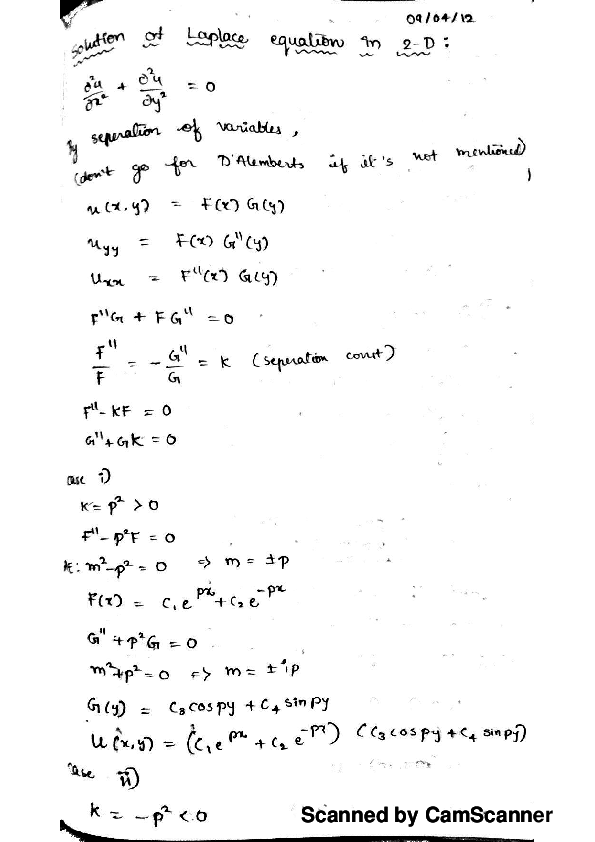 09/04/12
Solution of Laplace equation in 2-D:
∂²u/∂x² + ∂²u/∂y² = 0
By seperation of variables,
(don't go for D'Alemberts if it's not mentioned)
u(x,y) = F(x) G(y)
uyy = F(x) G''(y)
uxx = F''(x) G(y)
F''G + FG'' = 0
F''/F = -G''/G = k (seperation const)
F'' - kF = 0
G'' + Gk = 0
case i)
k = p² > 0
F'' - p²F = 0
AE: m² - p² = 0 => m = ±p
F(x) = c₁e^px + c₂e^-px
G'' + p²G = 0
m² + p² = 0 => m = ±ip
G(y) = c₃ cos py + c₄ sin py
u(x,y) = (c₁e^px + c₂e^-px) (c₃ cos py + c₄ sin py)
case ii)
k = -p² < 0
Scanned by CamScanner